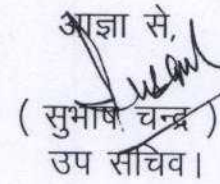 आज्ञा से,
( सुभाष चन्द्र )
उप सचिव।